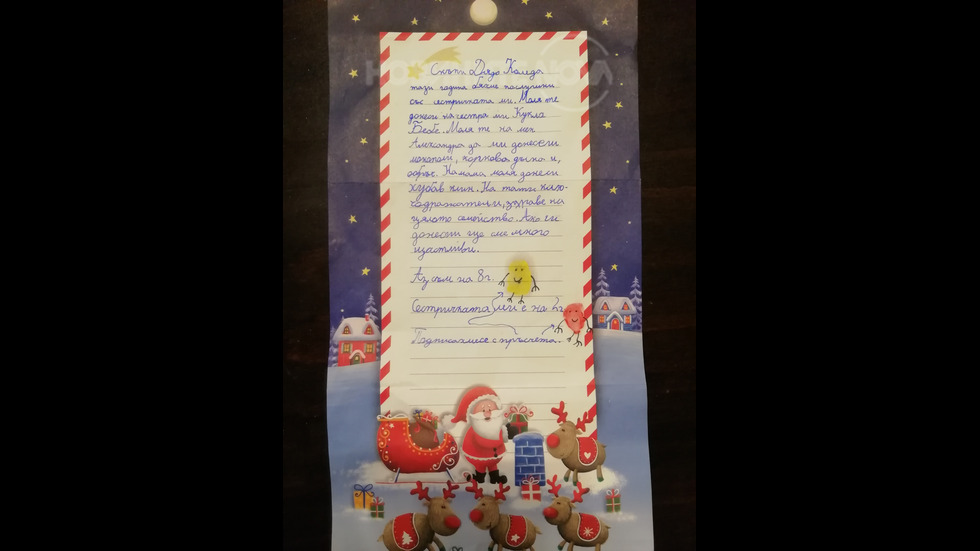 Скъпи Дядо Коледа
тази година бяхме послушни
със сестричката ми. Моля те
донеси на сестра ми Кукла
Бебе. Моля те на мен
Александра да ми донесеш
монополи, коркова дъска и,
обръч. На мама моля донеси
хубав клин. На тати клю-
чодържатели, здраве на
цялото семейство. Ако ги
донесеш ще сме много
щастливи.
Аз съм на 8г.
Сестричката ми е на 2г.
Подписахмесе с пръстчета.